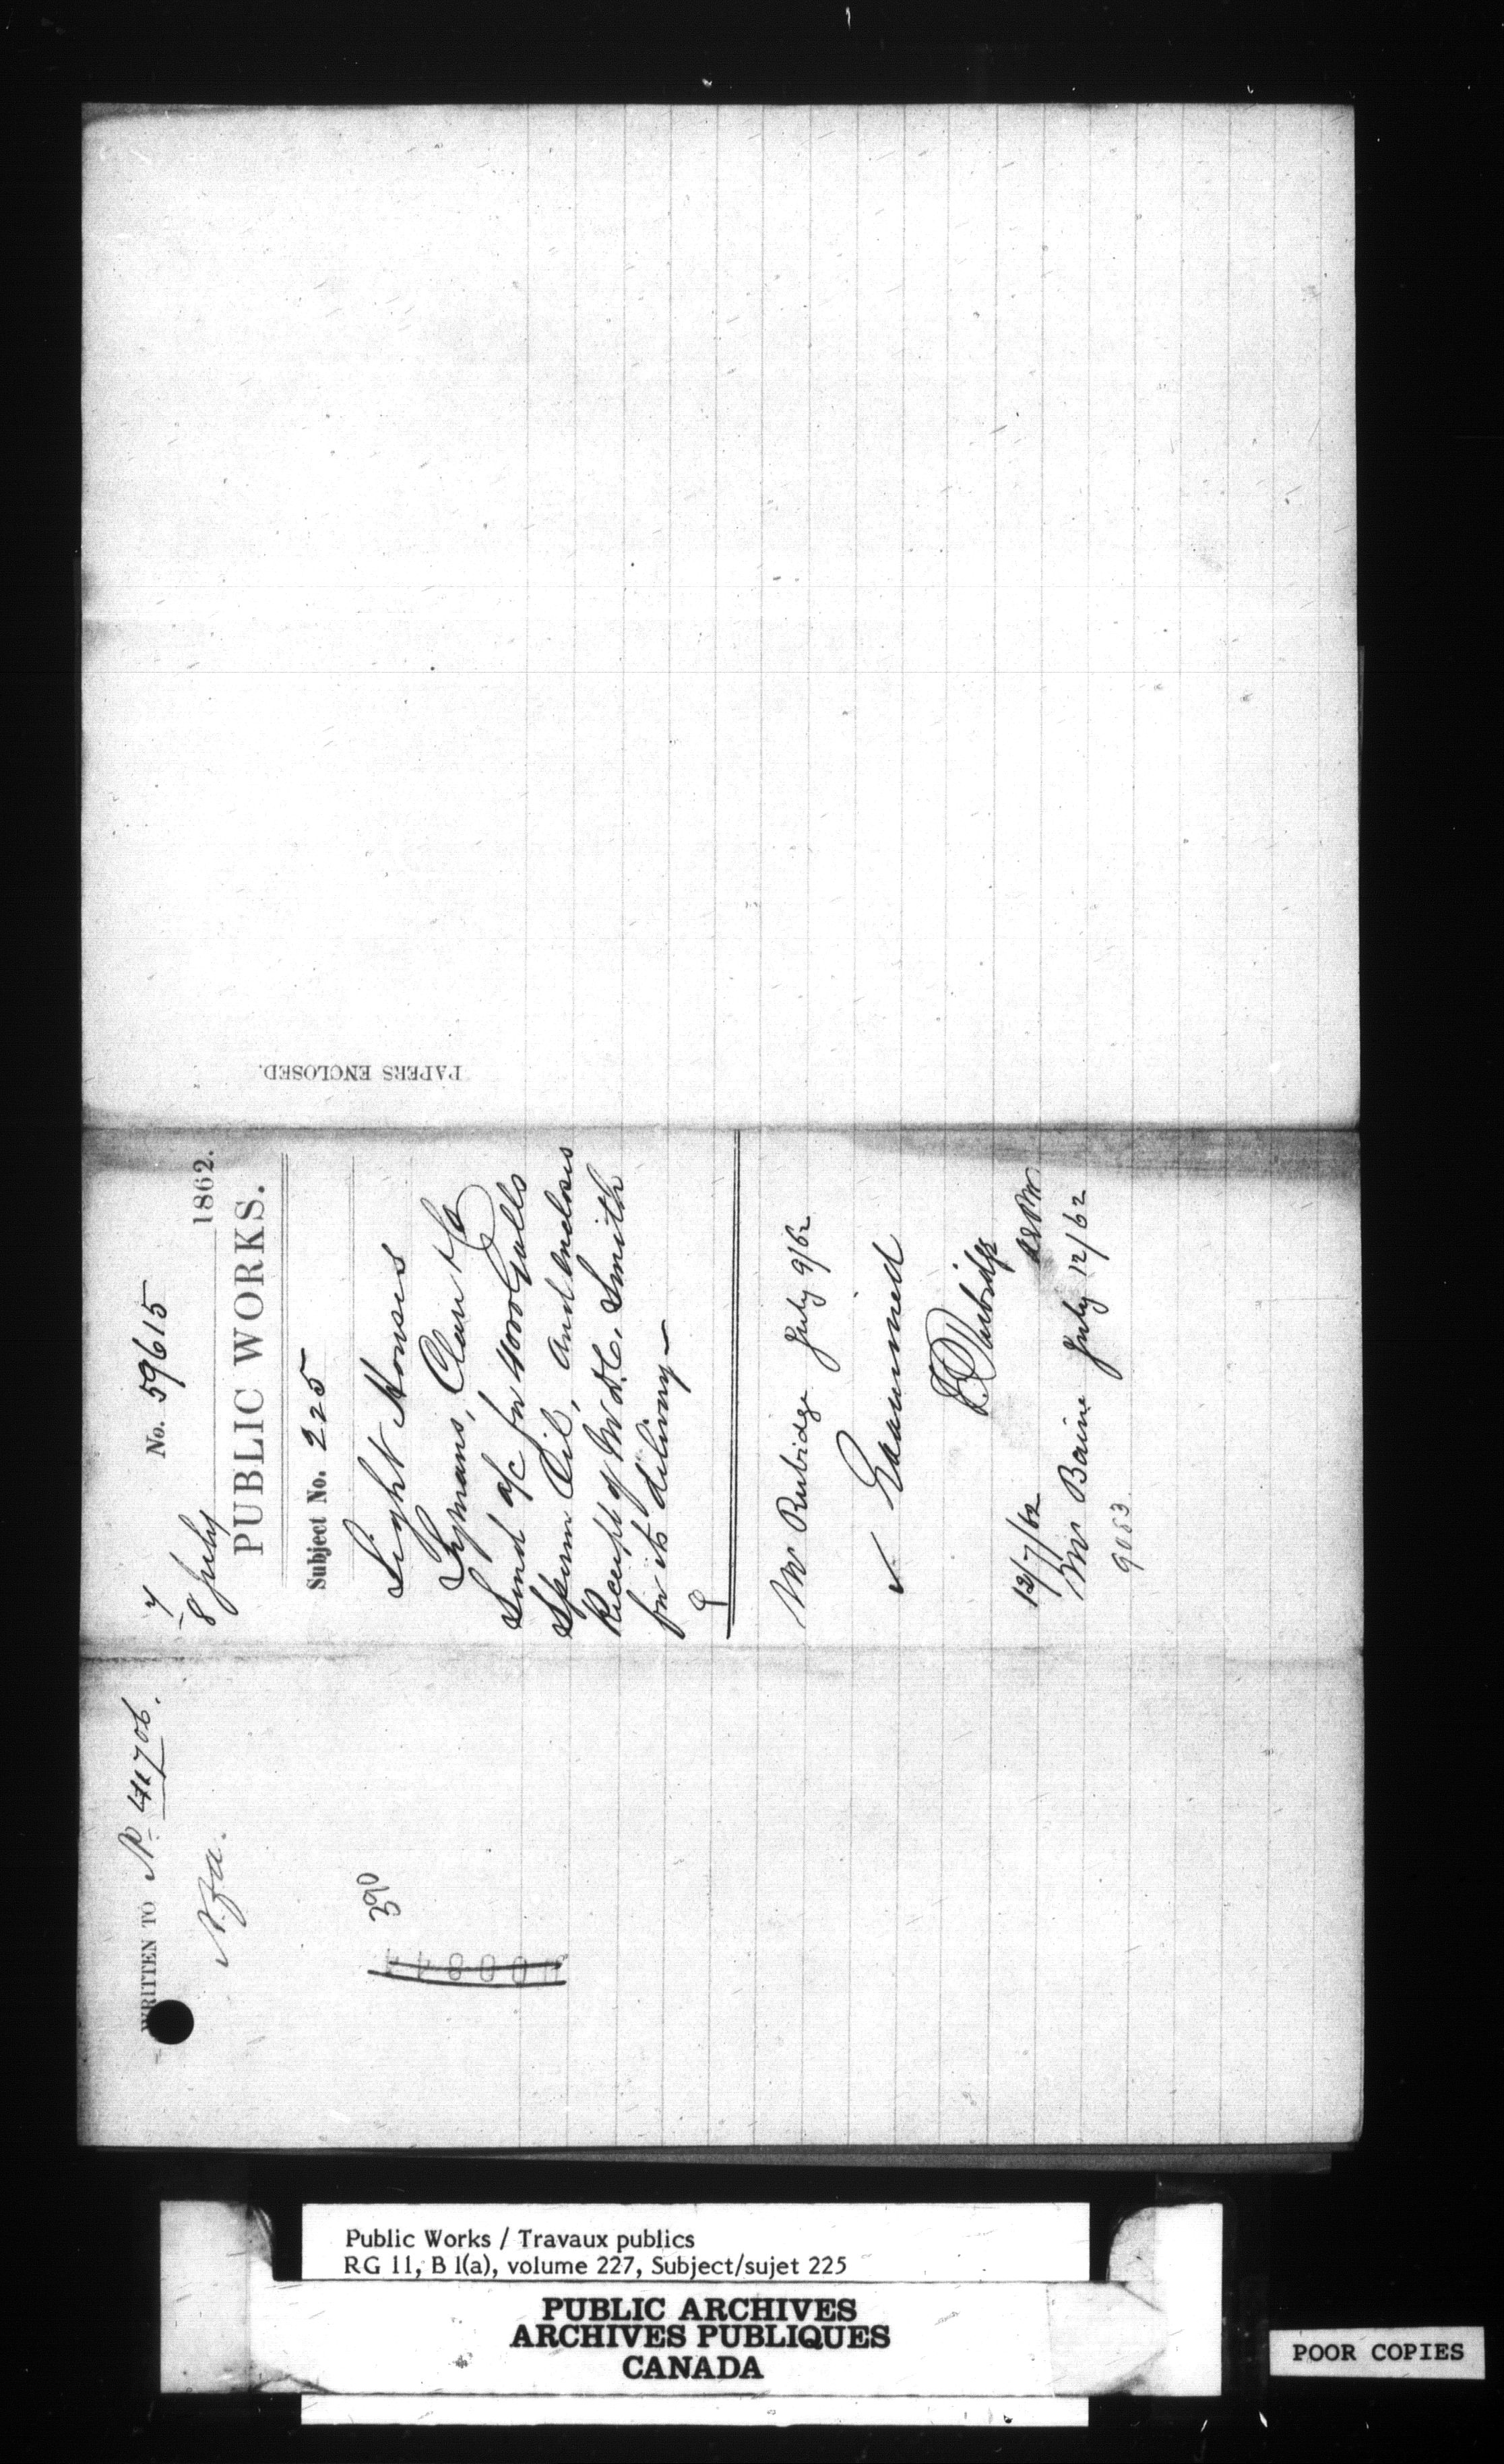 WRITTEN TO No 41706.
390
7
8 July
No. 59615
1862.
PUBLIC WORKS.
Subject No. 225
Light Houses
Lymans, Clare & Co
Send a/c for 4000 Galls
Sperm Oil, and encloses
Receipt of Mr D.C. Smith
for its delivery—
Mr Rubidge July 9/62
✓ Examined
Rubidge
12/7/62
Mr Baine July 12/62
9053
PAPERS ENCLOSED.
Public Works / Travaux publics
RG 11, B 1(a), volume 227, Subject/sujet 225
PUBLIC ARCHIVES
ARCHIVES PUBLIQUES
CANADA
POOR COPIES